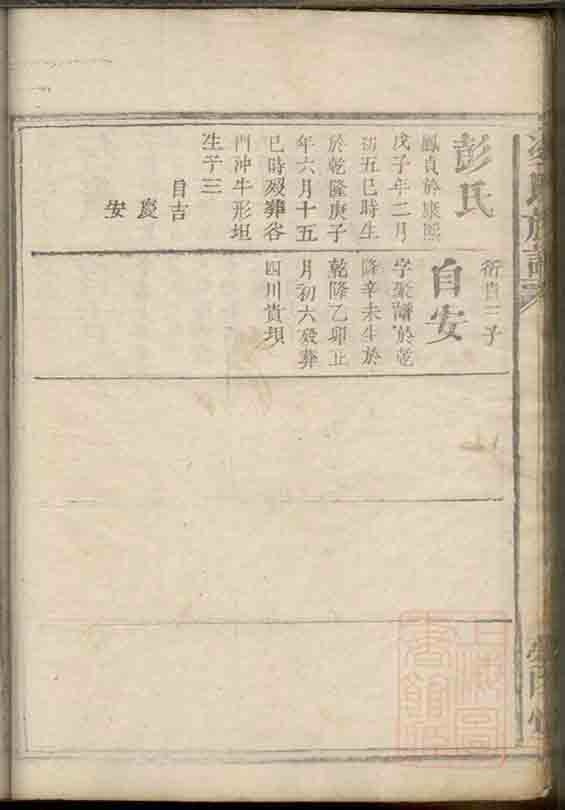 氏族譜
彭氏
鳳貞於康熙
戊子年二月
初五巳時生
於乾隆庚子
年六月十五
巳時歿葬谷
門沖牛形坦
生子三
自吉
慶
安
衍貞三子
自安
字聚譜於乾
隆辛未生於
乾隆乙卯正
月初六歿葬
四川貴垻
上海圖
書館藏